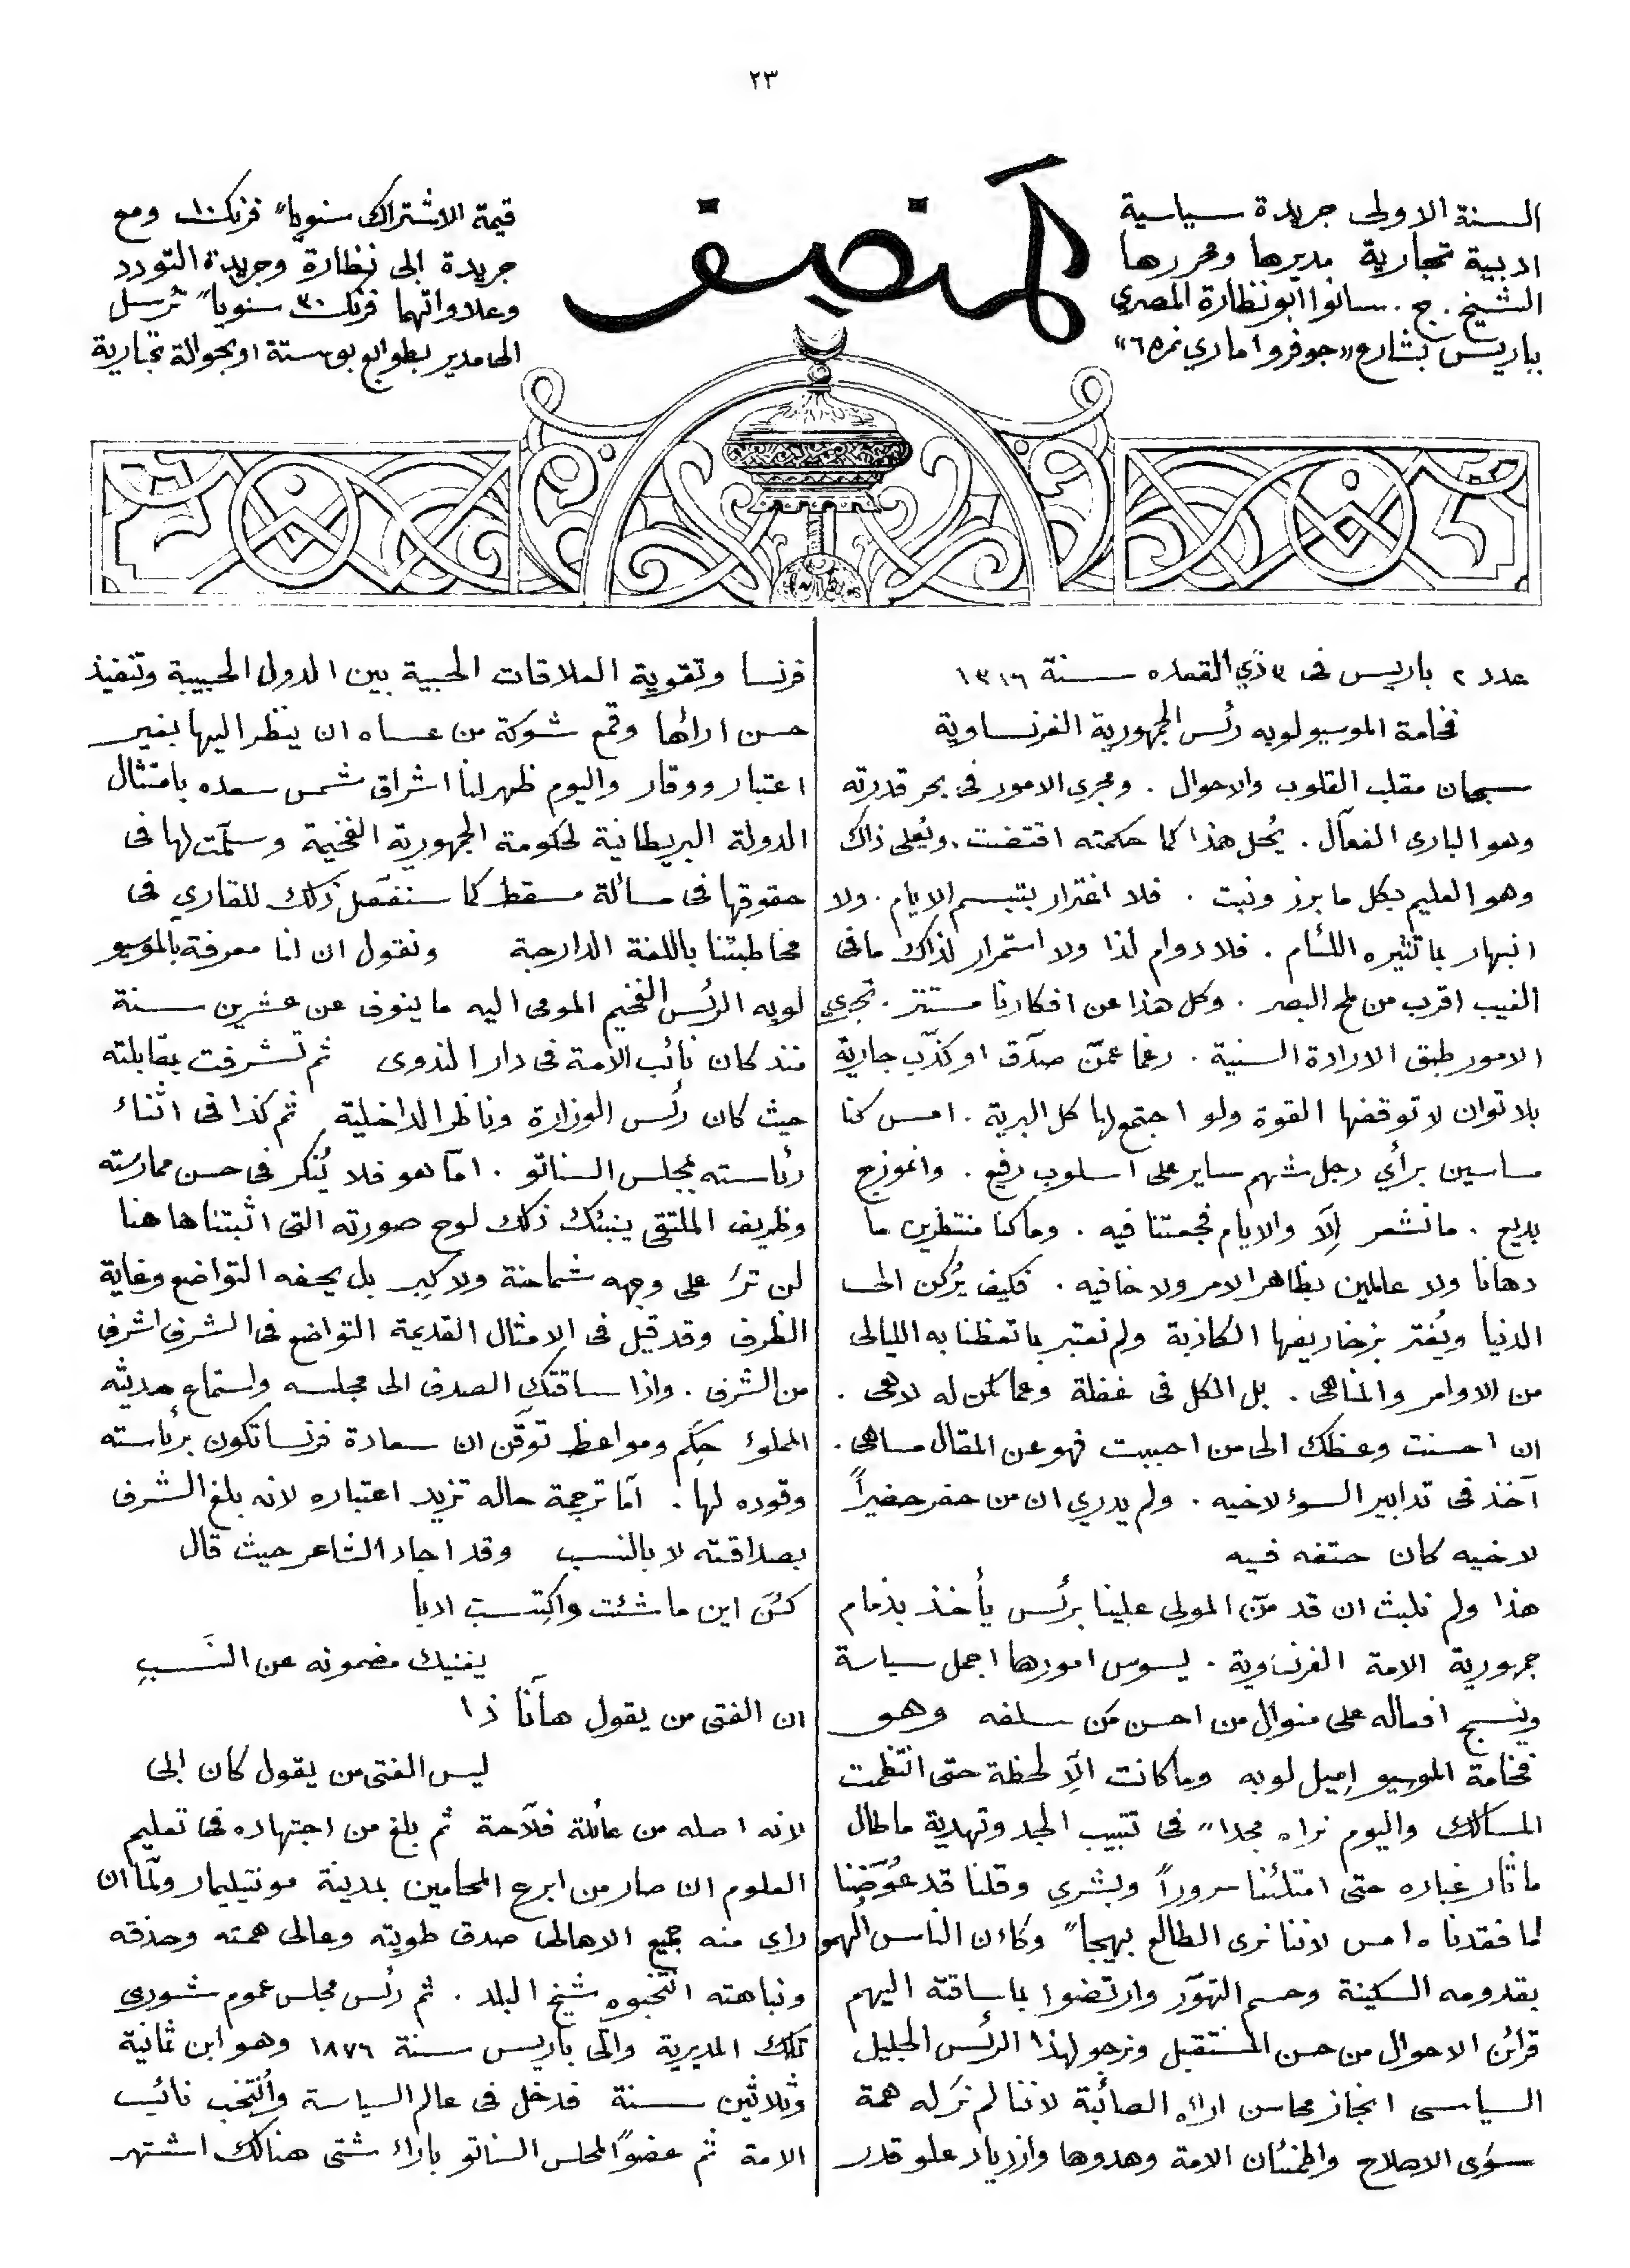 ٢٣
المنصف
السنة الاولى جريدة سياسية
ادبية تجارية مديرها ومحررها
الشيخ . ج . سانوا ابو نظارة المصري
بباريس بشارع «جوفروا ماري نمره ٦»
قيمة الاشتراك سنويا" فرنك ١٠ ومع
جريدة ابى نظارة وجريدة التودد
وعلاواتهما فرنك ٣٠ سنويا" ترسل
الى مدير بطوابع بوستة او بحوالة تجارية
عدد ٢ باريس فى ٣ ذي القعده سنة ١٣١٦
فخامة الموسيو لوبه رئس الجمهورية الفرنساوية
سبحان مقلب القلوب والاحوال . ومجرى الامور فى بحر قدرته
وهو البارى الفعّال . يُحل هذا كما حكمته اقتضت . ويُعلى ذاك
وهو العليم بكل ما برز ونبت . فلا اغترار بتبسم الايام . ولا
انبهار بما تثيره اللئام . فلا دوام لذا ولا استمرار لذاك ما فى
الغيب اقرب من لمح البصر . وكل هذا عن افكارنا مستتر . تجرى
الامور طبق الارادة السنية . رغما عمّن صدّق او كذّب جارية
بلا توان لا توقفها القوة ولو اجتمع لها كل البرية . امس كنا
ساسين برأي رجل شهم ساير على اسلوب رفيع . وانموزج
بديع . ما نشعر إلّا والايام فجعتنا فيه . وما كنا منتظرين ما
دهانا ولا عالمين بظاهر الامر ولا خافيه . فكيف يُركن الى
الدنيا ويُغتر بزخاريفها الكاذبة ولم نعتبر بما تعظنا به الليالى
من الاوامر والمناهى . بل الكل فى غفلة وعما كمن له لاهى .
ان احسنت وعظك الى من احببت فهو عن المقال ساهى .
آخذ فى تدابير السوٴ لاخيه . ولم يدري ان من حفر حفيراً
لاخيه كان حتفه فيه
هذا ولم نلبث ان قد منّ المولى علينا برئس يأخذ بذمام
جمهورية الامة الفرنساوية . ليسوس امورها اجمل سياسة
وينسج افعاله على منوال من احسن مَن سلفه وهو
فخامة الموسيو إميل لوبه وما كانت الّا لحظة حتى انتظمت
المسالك واليوم نراه مجدا" فى تتبيب الجد وتهدية ما طال
ما ثار غباره حتى امتلئنا سروراً وبشرى وقلنا قد عُوّضنا
لما فقدناه امس لاننا نرى الطالع بهيجا" وكاٴن الناس الُهمو
بقدومه السكينة وحسم التهوّر وارتضوا بما ساقته اليهم
قرائن الاحوال من حسن المستقبل ونرجو لهذا الرئس الجليل
السياسى انجاز محاسن ارائه الصائبة لاننا لم نَر له همة
سوى الاصلاح واطمئنان الامة وهدوها وازدياد علو قدر
فرنسا وتقوية العلاقات الحبية بين الدول الحبيبة وتنفيذ
حسن ارائها وقمع شوكة من عساه ان ينظر اليها بغير
اعتبار ووقار واليوم ظهر لنا اشراق شمس سعده بامتثال
الدولة البريطانية لحكومة الجمهورية الفخيمة وسلّمت لها فى
حقوقها فى مسألة مسقط كما سنفصّل ذلك للقاري فى
مخاطبتنا باللغة الدارجة ونقول ان لنا معرفة بالموسيو
لوبه الرئس الفخيم المومى اليه ما ينوف عن عشرين سنة
منذ كان نائب الامة فى دار الندوى ثم تشرفت بمقابلته
حيث كان رئس الوزارة وناظر الداخلية ثم كذا فى اثناء
رئاسته لمجلس السناتو . امّا هو فلا يُنكر فى حسن ممارسته
وظريف الملتقى ينبئك ذلك لوح صورته التى اثبتناها هنا
لن ترَ على وجهه شماخة ولا كِبر بل يحفه التواضع وغاية
الظرف وقد قيل فى الامثال القديمة التواضع فى الشرف اشرف
من الشرف . واذا ساقتك الصدف الى مجلسه واستماع حديثه
المملوٴ حِكَم ومواعظ توقّن ان سعادة فرنسا تكون برئاسته
وقوده لها . أمّا ترجمة حاله تزيد اعتباره لانه بلغ الشرف
بصداقته لا بالنسب وقد اجاد الشاعر حيث قال
كُن اين ما شئت واكتسب ادبا
يغنيك مضمونه عن النَسبِ
ان الفتى من يقول هاأنا ذا
ليس الفتى من يقول كان ابى
لانه اصله من عائلة فلّاحة ثم بلغ من اجتهاده فى تعليم
العلوم ان صار من ابرع المحامين بمدينة مونتيليمار ولمّا ان
راى منه جميع الاهالى صدق طويته وعالى همته وحذقه
ونباهته انتخبوه شيخ البلد . ثم رئس مجلس عموم شورى
تلك المديرية واتى باريس سنة ١٨٧٦ وهو ابن ثمانية
وثلاثين سنة فدخل فى عالم السياسة وأُنتخب نائب
الامة ثم عضواً لمجلس السناتو باراء شتى هنالك اشتهر